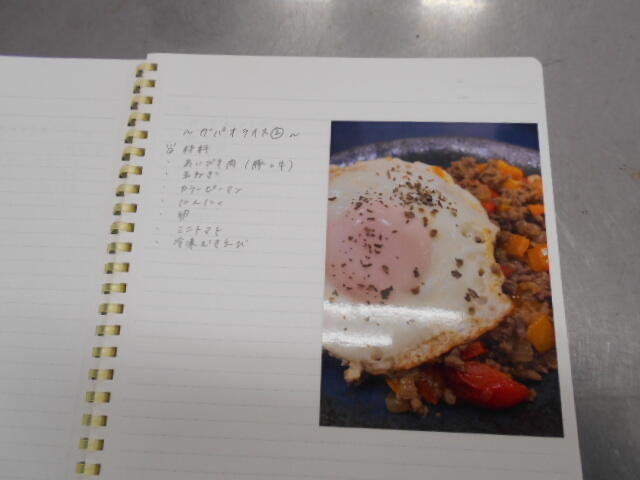 ～ガパオライス㊤～
材料
・あいびき肉（豚・牛）
・玉ねぎ
・カラーピーマン
・にんにく
・卵
・ミニトマト
・冷凍むきえび